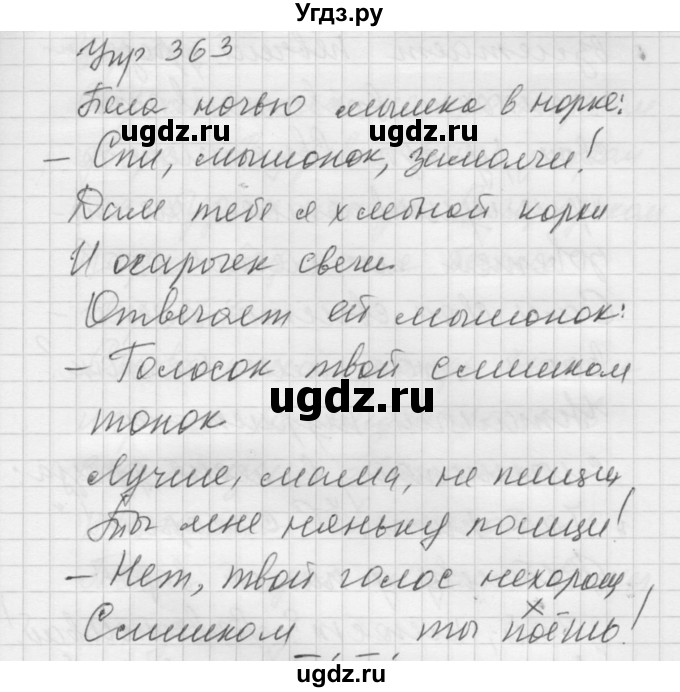 Угдз.ру
Упр 363
Пела ночью мышка в норке:
ugdz.ru ugdz.ru
– Спи, мышонок, замолчи!
Дам тебе я хлебной корки
И огарочек свечи.
ugdz.ru ugdz.ru
Отвечает ей мышонок:
– Голосок твой слишком
ugdz.ru
тонок
Лучше, мама, не пищи
Ты мне няньку поищи!
ugdz.ru ugdz.ru
– Нет, твой голос нехорош
Слишком ты поёшь!
ugdz.ru ugdz.ru